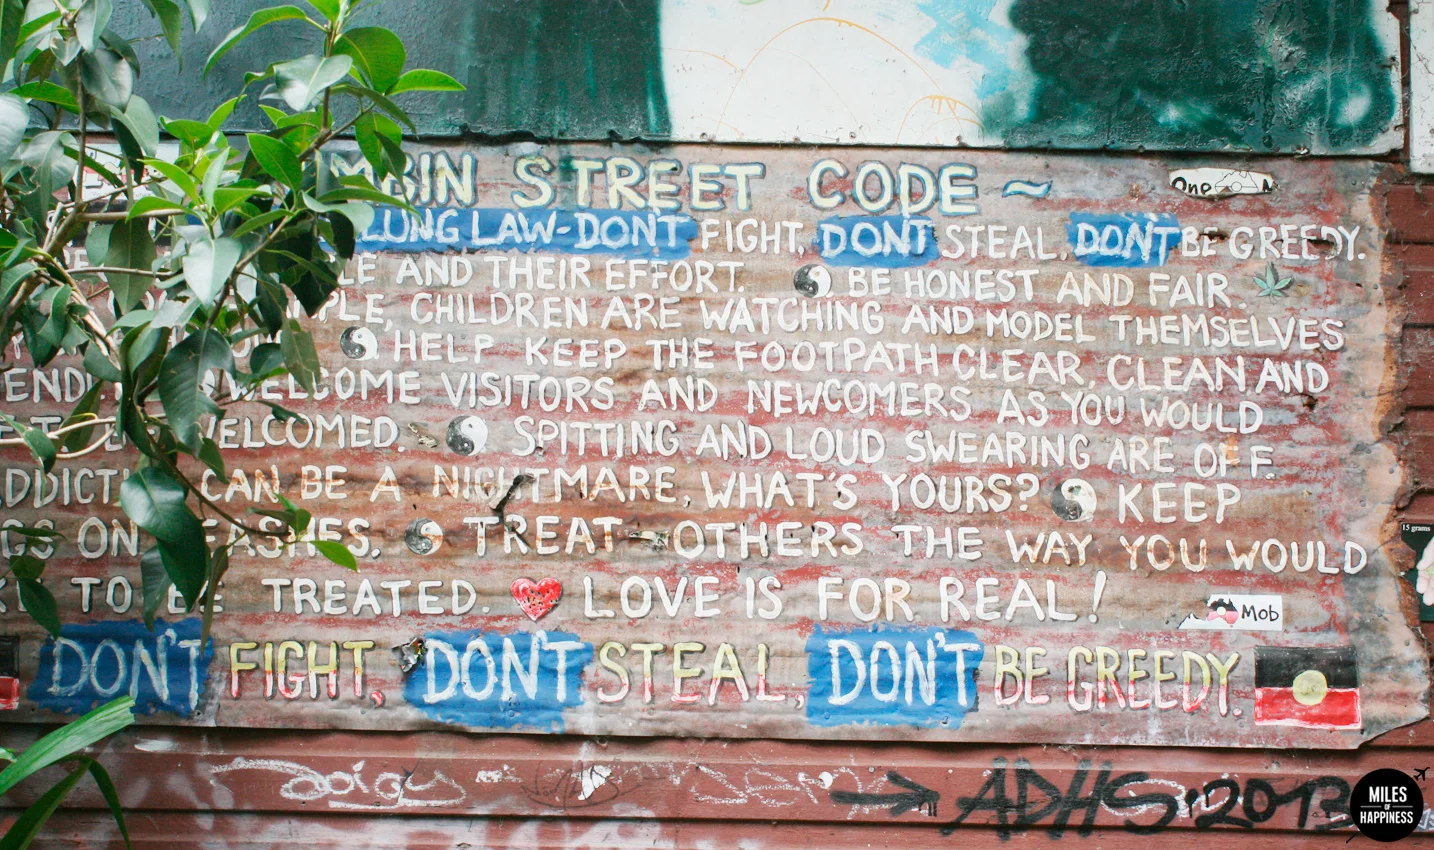 MBIN STREET CODE ~
One
LUNG LAW-DON'T FIGHT, DON'T STEAL, DON'T BE GREEDY.
LE AND THEIR EFFORT. BE HONEST AND FAIR.
PLE, CHILDREN ARE WATCHING AND MODEL THEMSELVES
HELP KEEP THE FOOTPATH CLEAR, CLEAN AND
END WELCOME VISITORS AND NEWCOMERS AS YOU WOULD
WELCOMED. SPITTING AND LOUD SWEARING ARE OFF.
ADDICT CAN BE A NIGHTMARE, WHAT'S YOURS? KEEP
GS ON LEASHES. TREAT OTHERS THE WAY YOU WOULD
TO BE TREATED. LOVE IS FOR REAL!
Mob
DON'T FIGHT, DON'T STEAL, DON'T BE GREEDY.
15 grams
ADHS 2013
MILES
OF
HAPPINESS